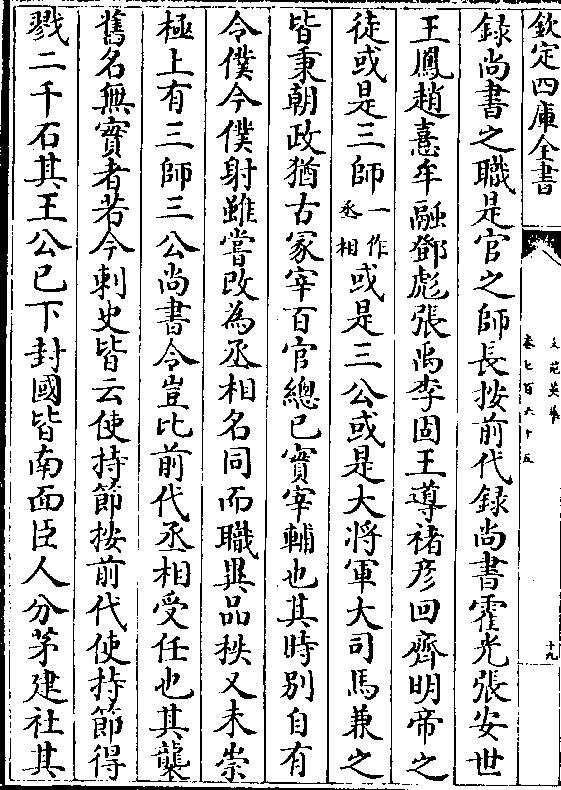 欽定四庫全書
文苑英華
卷七百六十五
十九
録尚書之職是官之師長按前代録尚書霍光張安世
王鳳趙憙牟融鄧彪張禹李固王導褚彦回齊明帝之
徒或是三師一作丞相或是三公或是大將軍大司馬兼之
皆秉朝政猶古冢宰百官總已實宰輔也其時别自有
令僕今僕射雖嘗改為丞相名同而職異品秩又未崇
極上有三師三公尚書令豈比前代丞相受任也其襲
舊名無實者若今刺史皆云使持節按前代使持節得
戮二千石其王公已下封國皆南面臣人分茅建社其